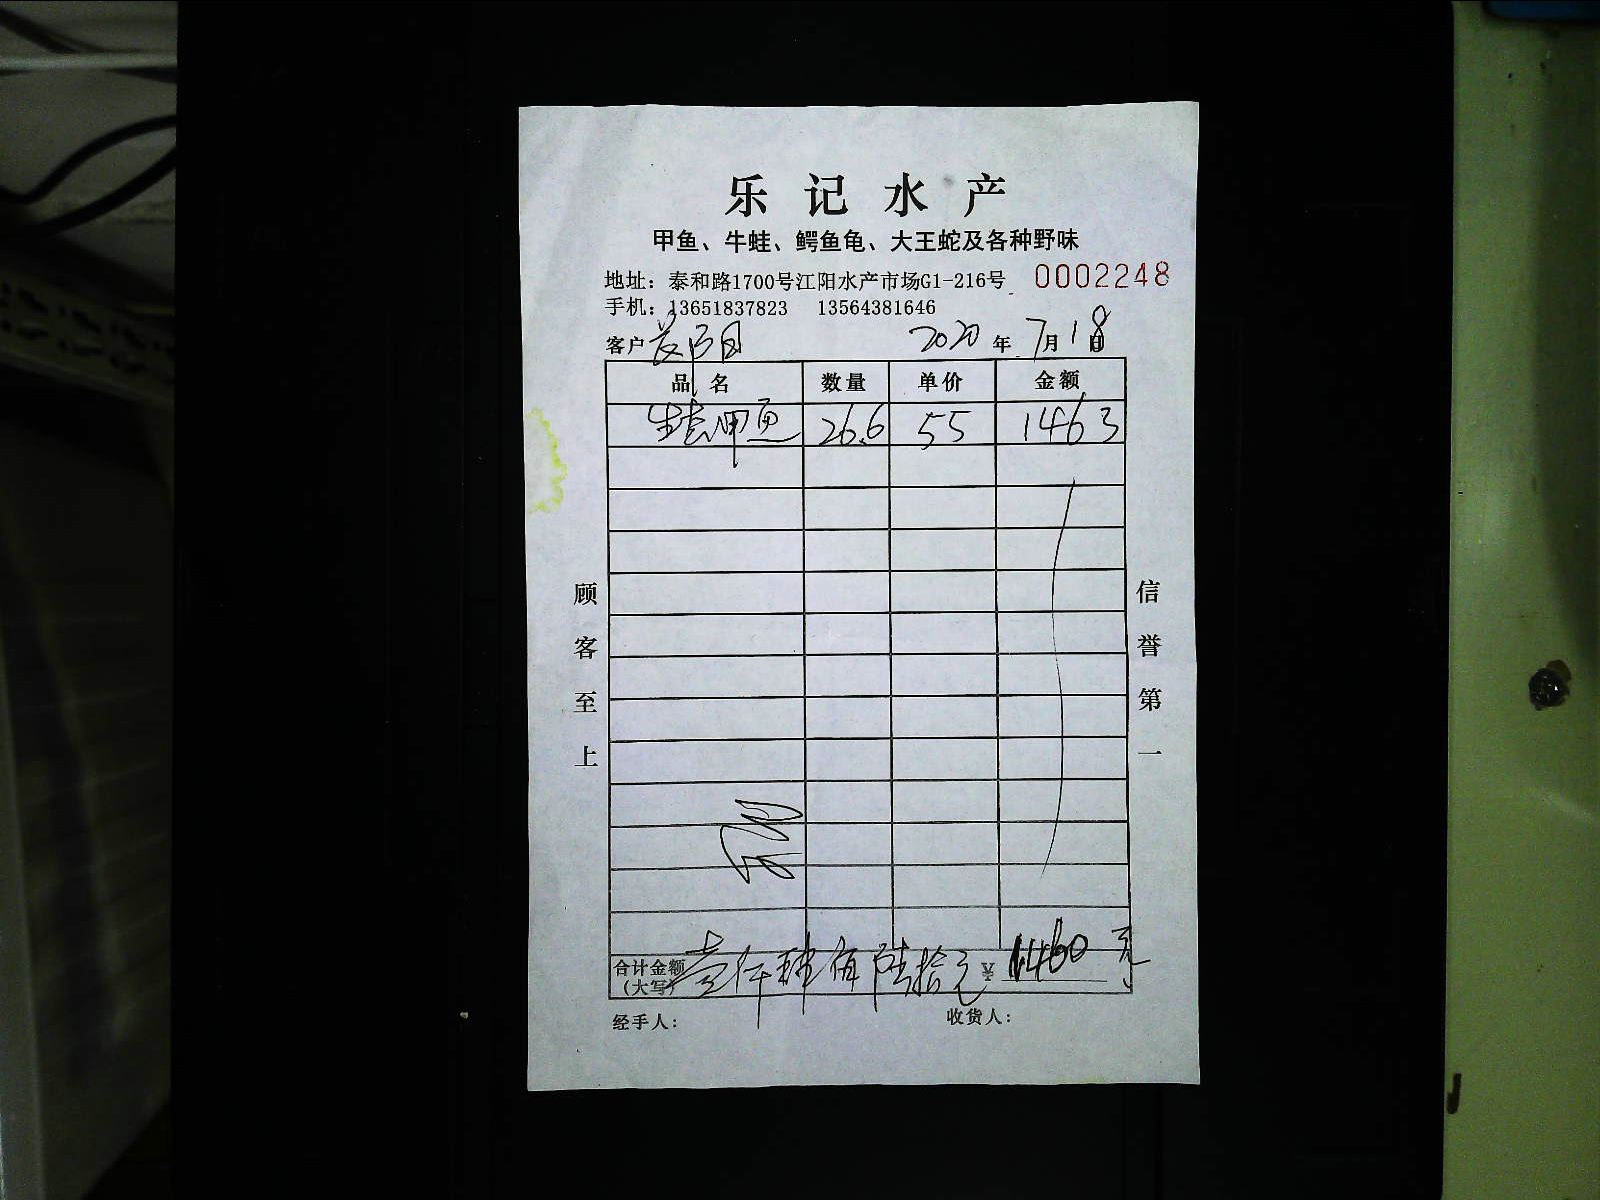 乐记水产
甲鱼、牛蛙、鳄鱼龟、大王蛇及各种野味
地址：泰和路1700号江阳水产市场G1-216号 0002248
手机：13651837823 13564381646
客户 2020年7月18日
品名 数量 单价 金额
生态甲鱼 26.6 55 1463
顾客至上
信誉第一
合计金额（大写） 壹仟肆佰陆拾元 ¥ 1460元
经手人： 收货人：